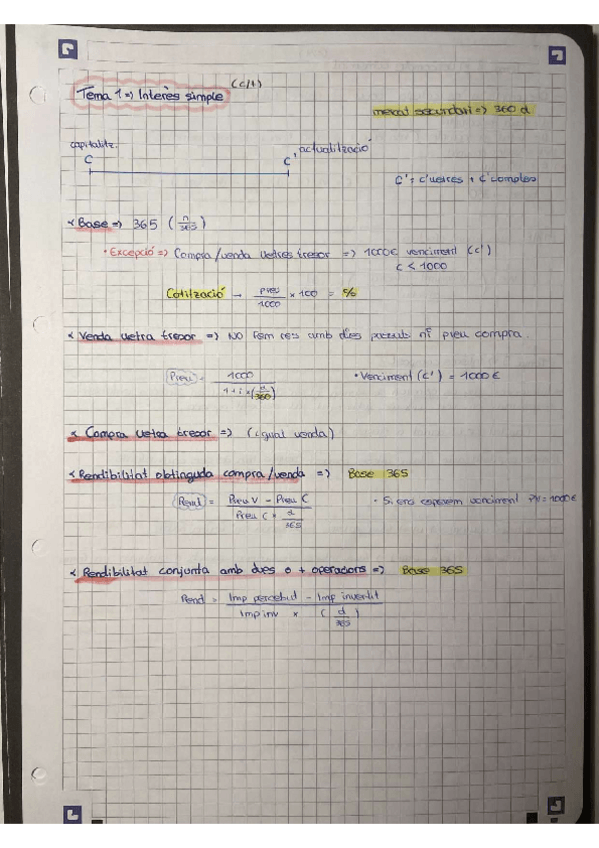 (c/t)
Tema 1 => Interès simple
mercat secundari => 360 d
capitalitz. actualització
C C'
C' = c'lletres i C' comptes
* Base => 365 (n/365)
• Excepció => Compra/venda lletres tresor => 1000€ venciment (C')
C < 1000
Cotització → preu/1000 × 100 = %
* Venda lletra tresor => NO fem res amb dies passats ni preu compra.
Preu = 1000/(1 + i × (n/360)) • Venciment (C') = 1000€
* Compra lletra tresor => (igual venda)
* Rendibilitat obtinguda compra/venda => Base 365
Rend = (Preu V - Preu C)/(Preu C × d/365) • Si ens esperem venciment PV = 1000€
* Rendibilitat conjunta amb dues o + operacions => Base 365
Rend = (Imp percebut - Imp invertit)/(Imp inv × (d/365))